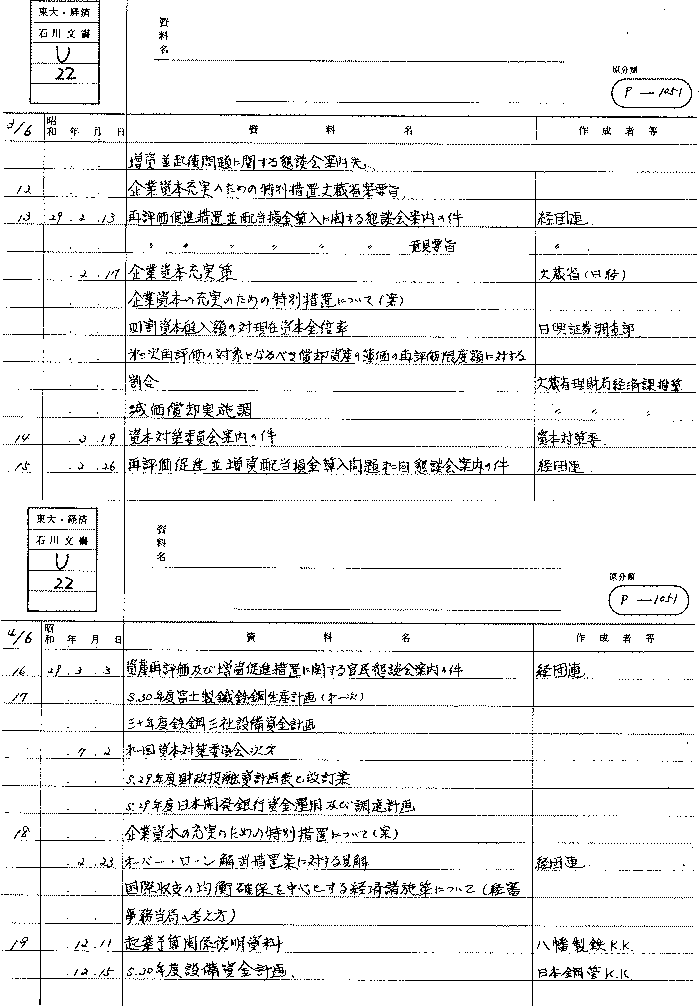 東大・経済
石川文書
U
22
資料名
原分類
P-1051
3/6 昭和 年 月 日 資 料 名 作 成 者 等
増資並起債問題に関する懇談会案内先
12 企業資本充実のための特別措置大蔵省案要旨
13 29.2.13 再評価促進措置並配当損金算入に関する懇談会案内の件 経団連
〃 〃 〃 〃 〃 〃 〃 意見要旨 〃
.2.17 企業資本充実策 大蔵省(日経)
企業資本の充実のための特別措置について(案)
四割資本組入額の対現在資本金倍率 日興証券調査部
オ三次再評価の対象となるべき償却資産の簿価の再評価限度額に対する
割合 大蔵省理財局経済課推算
減価償却実施調 〃 〃 〃
14 .2.19 資本対策委員会案内の件 資本対策委
15 .2.26 再評価促進並増資配当損金算入問題オ二回懇談会案内の件 経団連
東大・経済
石川文書
U
22
資料名
原分類
P-1051
4/6 昭和 年 月 日 資 料 名 作 成 者 等
16 29.3.3 資産再評価及び増資促進措置に関する官民懇談会案内の件 経団連
17 S.30年度富士製鐵鉄鋼生産計画(オ一次)
三十年度鉄鋼三社設備資金計画
.7.2 オ一回資本対策委員会次才
S.29年度財政投融資計画表と改訂案
S.29年度日本開発銀行資金運用及び調達計画
18 企業資本の充実のための特別措置について(案)
.2.23 オーバー・ローン解消措置案に対する見解 経団連
国際収支の均衡確保を中心とする経済諸施策について(経審
事務当局の考え方)
19 .12.11 起業予算関係説明資料 八幡製鉄K.K.
.12.15 S.30年度設備資金計画 日本鋼管K.K